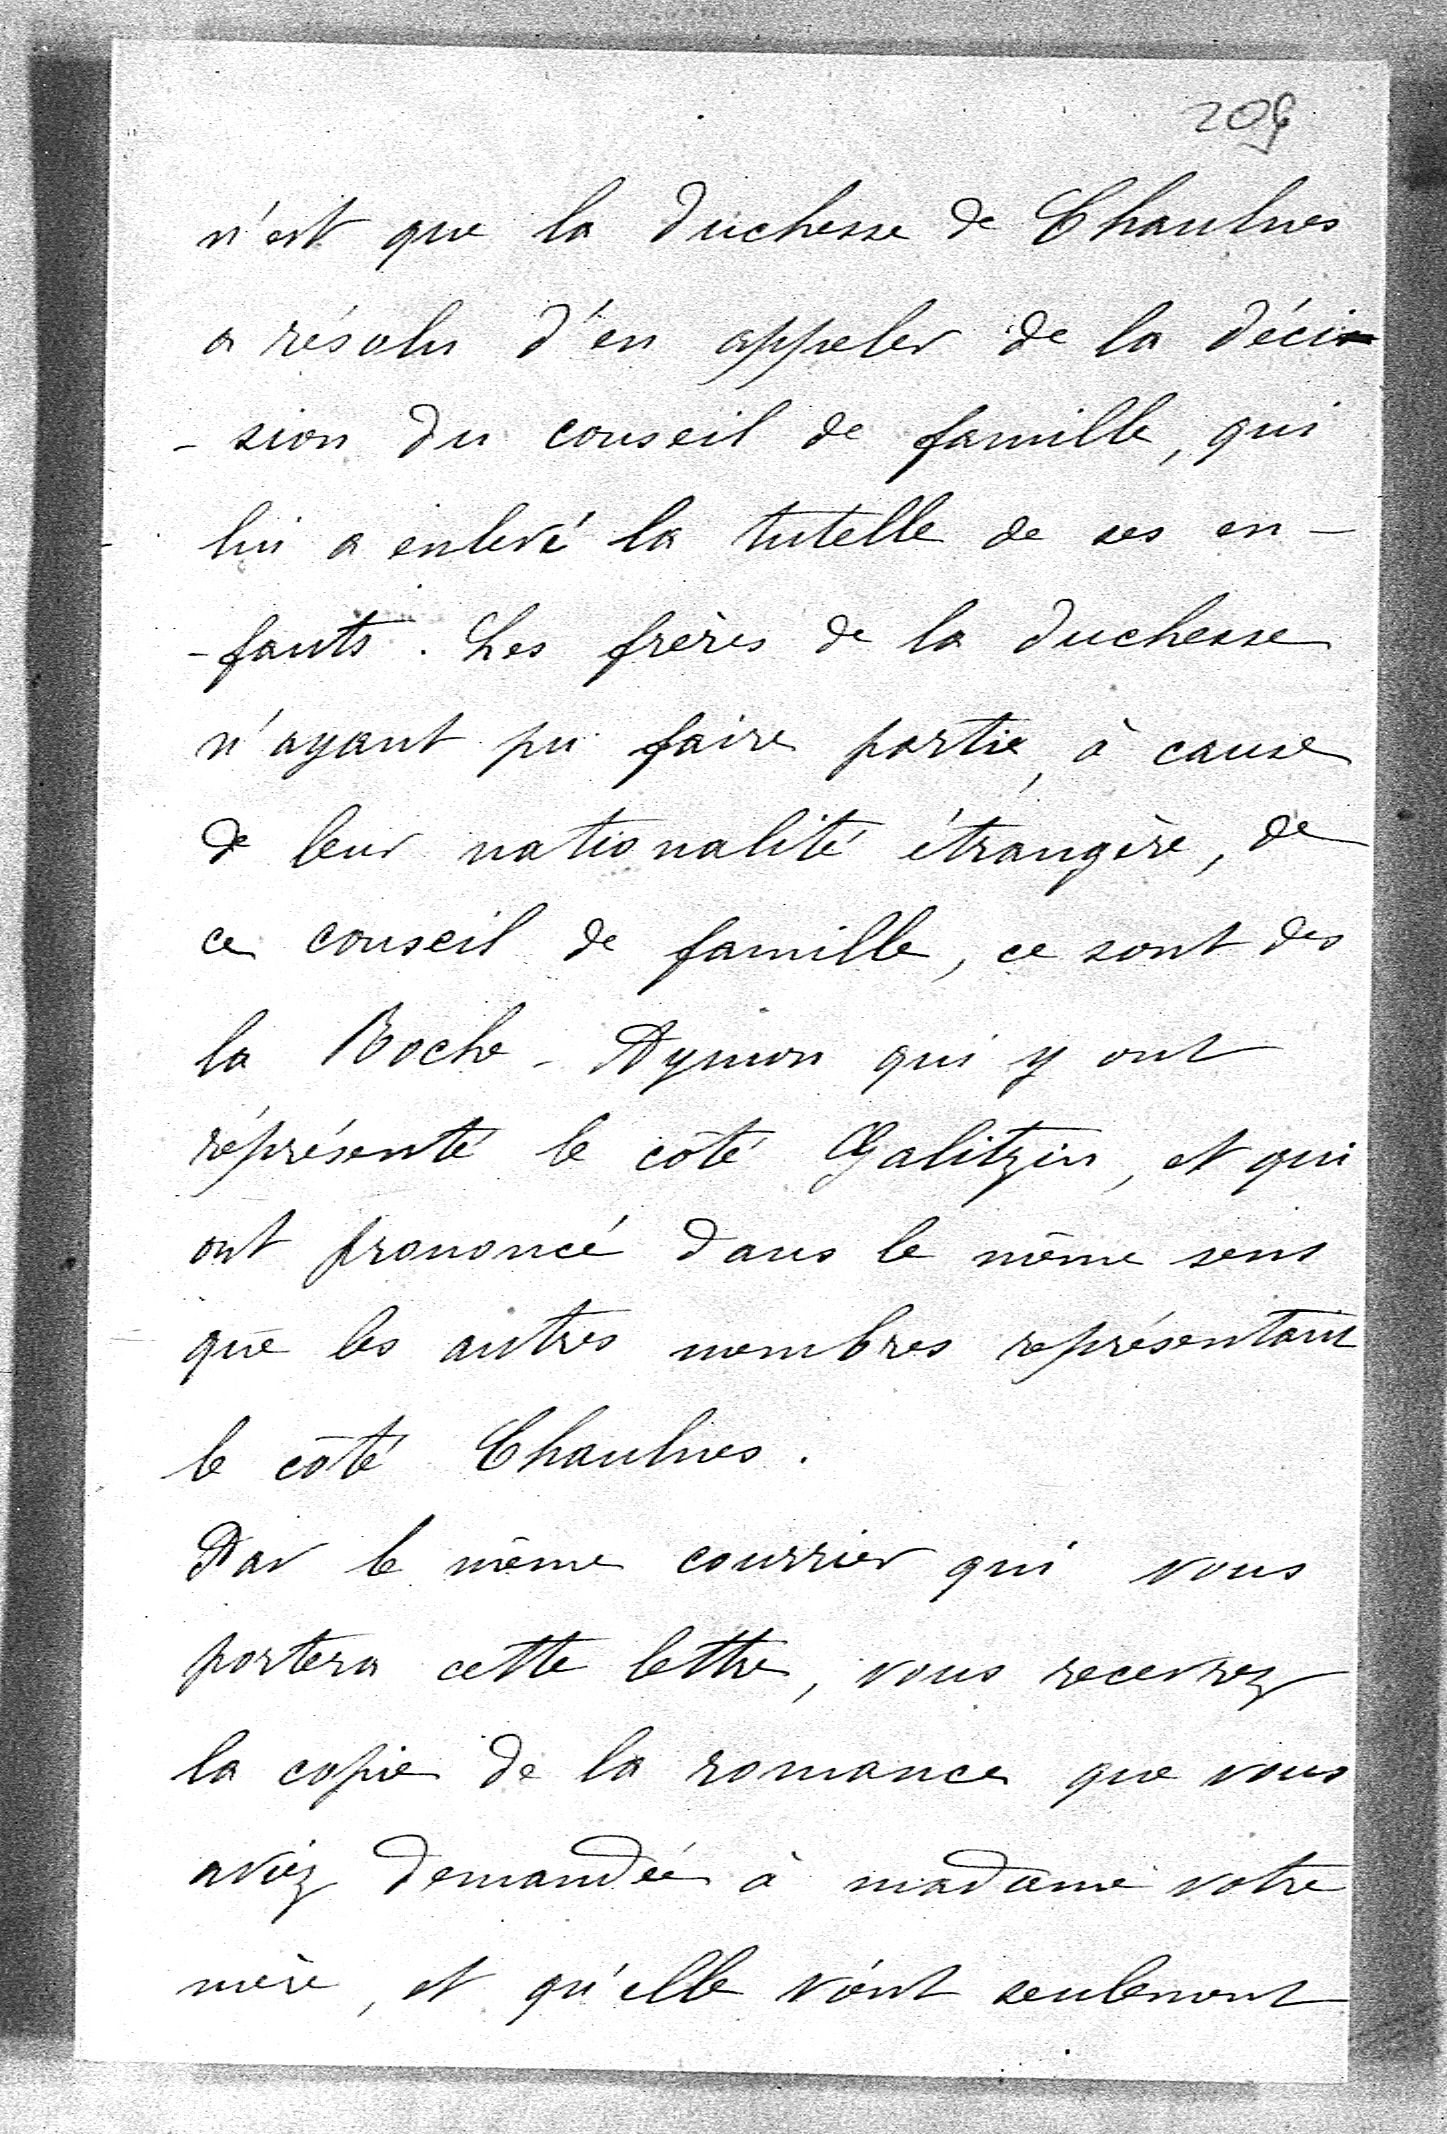 209
n'est que la Duchesse de Chaulnes
a résolu d'en appeler de la déci-
-sion du conseil de famille, qui
lui a enlevé la tutelle de ses en-
-fants. Les frères de la Duchesse
n'ayant pu faire partie, à cause
de leur nationalité étrangère, de
ce conseil de famille, ce sont des
la Roche-Aymon qui y ont
réprésenté le côté Galitzin, et qui
ont prononcé dans le même sens
que les autres membres représentant
le côté Chaulnes.
Par le même courrier qui vous
portera cette lettre, vous recevrez
la copie de la romance que vous
aviez demandée à madame votre
mère, et qu'elle vient seulement